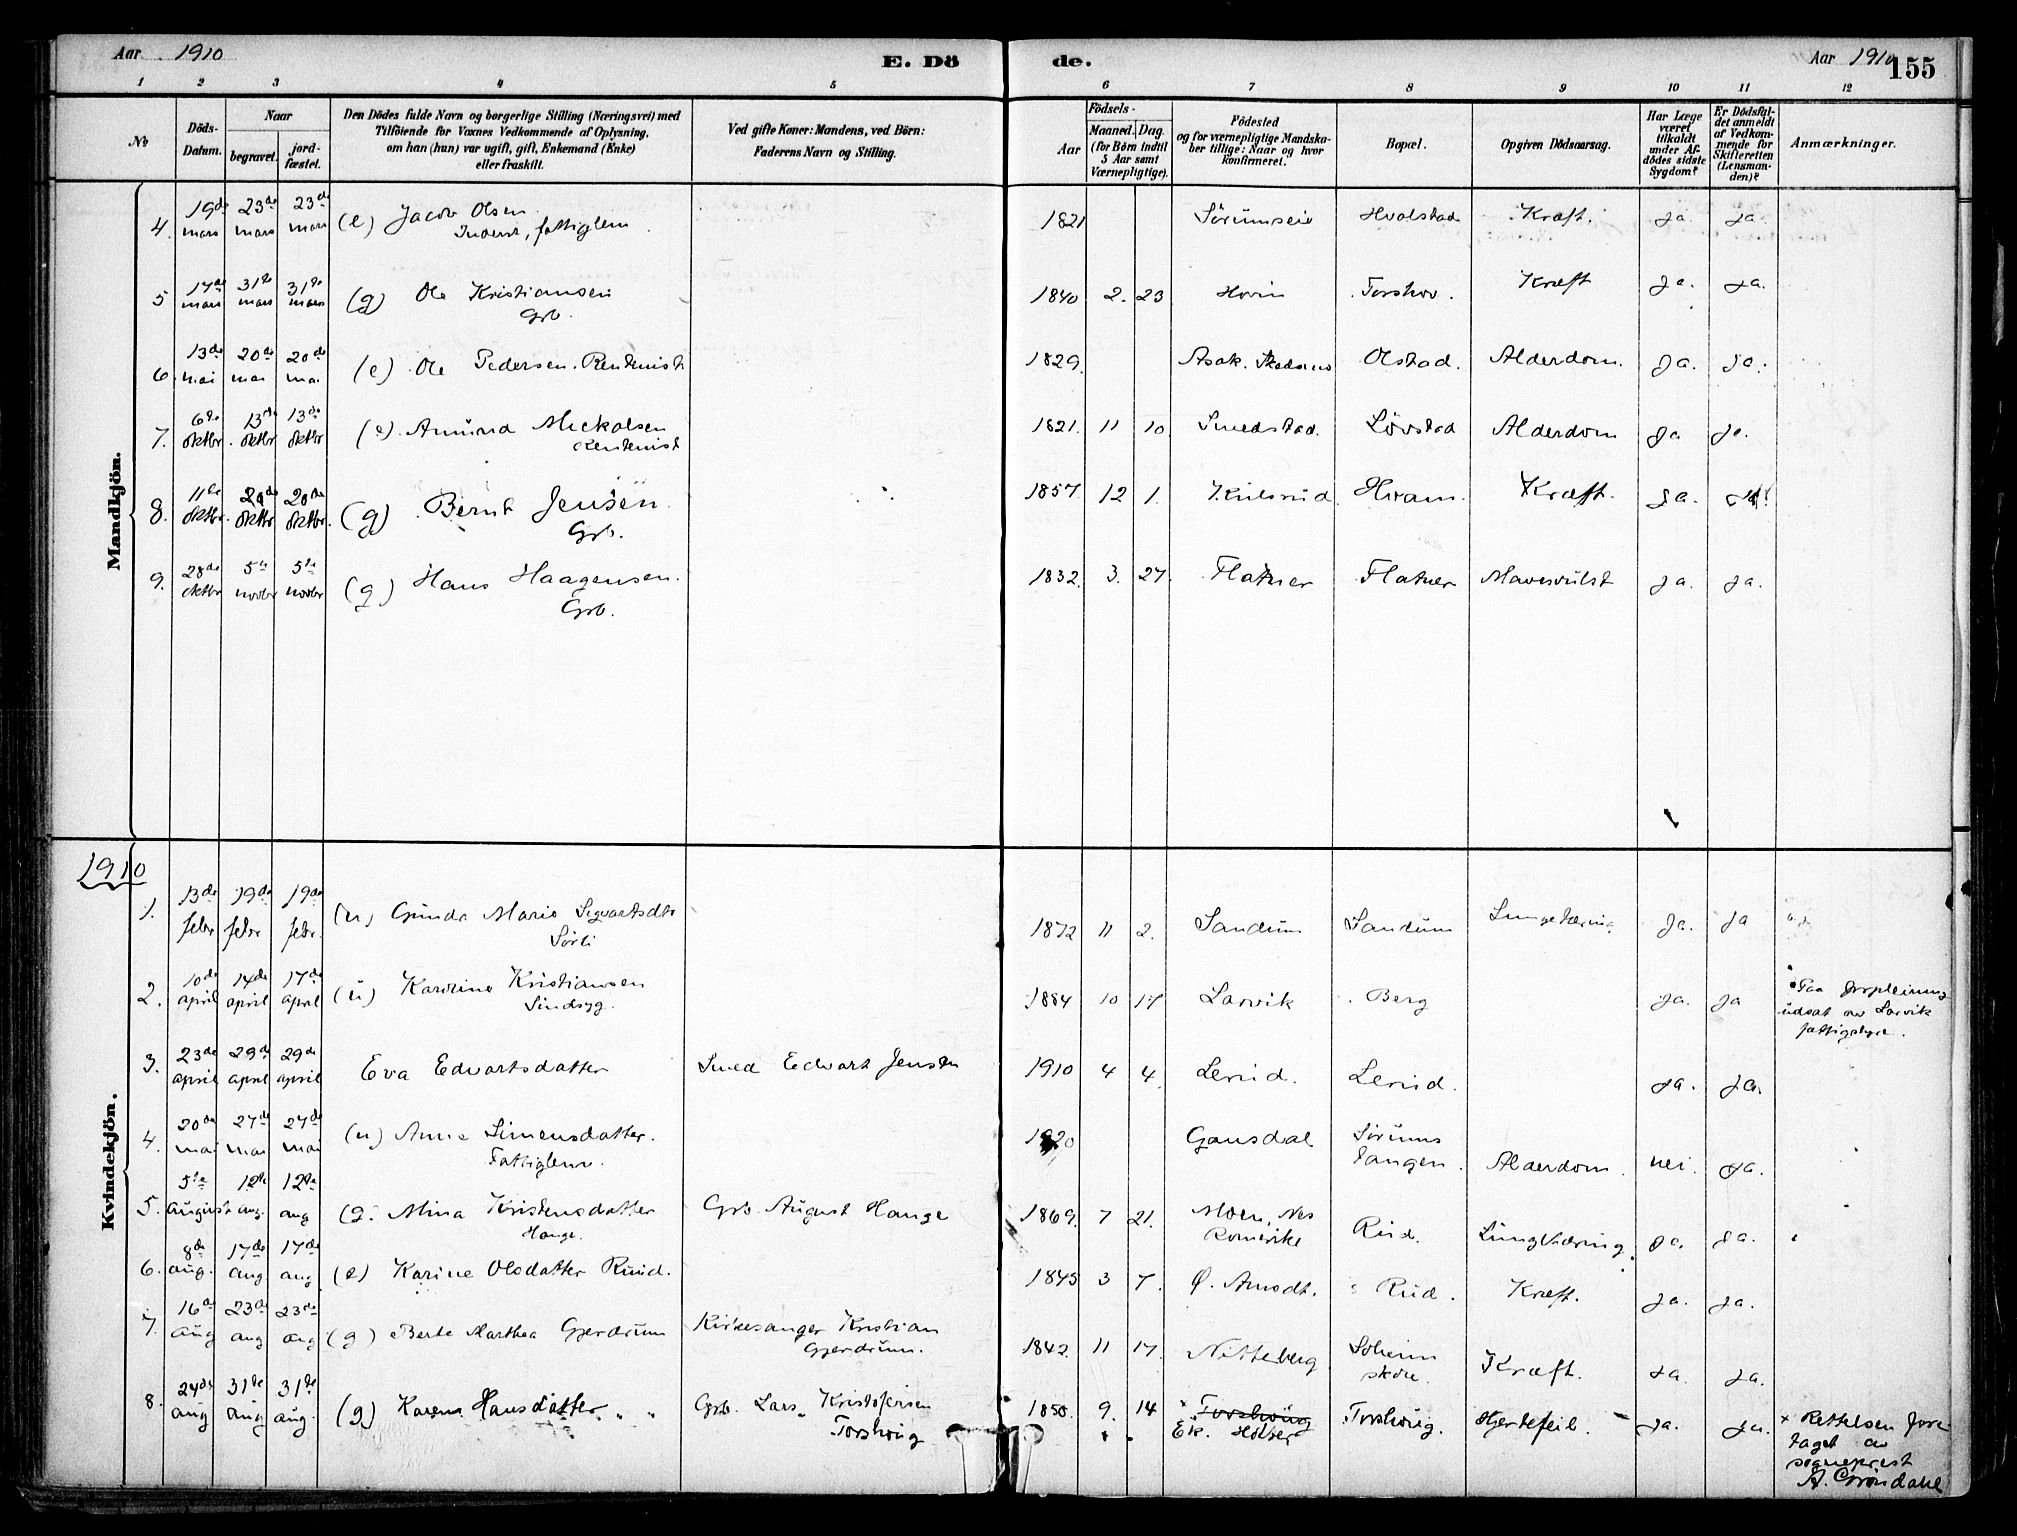 Aar 1910
E. Dö
de.
Aar 1910
155
1 2 3 4 5 6 7 8 9 10 11 12
No
Döds-Datum.
Naar
begravet.
jordfæstet.
Den Dödes fulde Navn og borgerlige Stilling (Næringsvei) med
Tilföiende for Voxnes Vedkommende af Oplysning,
om han (hun) var ugift, gift, Enkemand (Enke)
eller fraskilt.
Ved gifte Koner: Mandens, ved Börn:
Faderens Navn og Stilling.
Födsels-
Aar
Maaned. Dag.
(for Börn indtil
5 Aar samt
Værnepligtige).
Födested
og for værnepligtige Mandska-
ber tillige: Naar og hvor
konfirmeret.
Bopæl.
Opgiven Dödsaarsag.
Har Læge
været
tilkaldt
under Af-
dödes sidste
Sygdom?
Er Dödsfal-
det anmeldt
af Vedkom-
mende for
Skifteretten
(Lensman-
den)?
Anmærkninger.
Mandkjön.
4. 19de mars 23de mars 23de mars (e) Jacob Olsen Inderst, fattiglem 1821 Sörumseie Hvalstad Kræft. ja ja
5 17de mars 31te mars 31te mars (g) Ole Kristiansen Grb. 1840 2. 23 Hovin Torshov. Kræft ja. ja.
6. 13de mai 20de mai 20de mai (e) Ole Pedersen. Rentenist 1829. Asak. Olstad. Alderdom. ja. ja.
7. 6te oktbr. 13de oktbr 13de oktbr (e) Amund Mickalsen Rentenist 1821. 11 10 Smedstad. Lövstad Alderdom ja ja.
8. 11te oktbr. 20de oktbr 20de oktbr. (g) Bernt Jensen. Grb. 1857. 12 1. Kulsrud Hvam. Kræft. ja. ja!
9. 28de oktbr 5te novbr 5te novbr (g) Hans Haagensen. Grb. 1832. 3. 27. Flatner Flatner Mavesvulst ja. ja.
1910
Kvindekjön.
1. 13de febr 19de febr 19de febr. (u) Gunda Marie Sigvartsdtr Sörli 1872 11 2. Sandum Sandum Lungetæring ja. ja
2. 10de april 14de april 17de april (u) Karoline Kristiansen Sindsyg. 1884 10 17 Larvik Berg ja. ja Paa forpleining
udsat av Larvik
fattigstyre.
3. 23de april 29de april 29de april Eva Edvartsdatter Smed Edvart Jensen 1910 4 4. Lerud. Lerud. ja. ja.
4. 20de mai 27de mai 27de mai (u) Anne Simensdatter. Fattiglem. 1820 Gansdal Sörums tangen. Alderdom. nei. ja.
5. 5te august 12te aug. 12te aug (g. Mina Kristensdatter Hauge. Grb. August Hauge 1869. 7 21. Moen, Nes Romerike Rud. Lungetæring. ja. ja.
6. 8de aug. 17de aug. 17de aug (e) Karine Olsdatter Ruud. 1845 3 7. Ö. Amodt. Rud. Kræft. ja. ja.
7. 16de aug 23de aug 23de aug (g) Berte Marthea Gjerdrum Kirkesanger Kristian Gjerdrum. 1842. 11 17. Nitteberg Kræft. ja. ja.
8. 24de aug 31te aug 31te aug. (g) Karen Hansdatter „ „ Grb. Lars Kristofersen Torshoug 1850. 9. 14 × Torshoug Ek. Hölter Torshoug. Hjertefeil. ja. ja. × Rettelsen fore-
taget av
sogneprest
A. Gröndahl